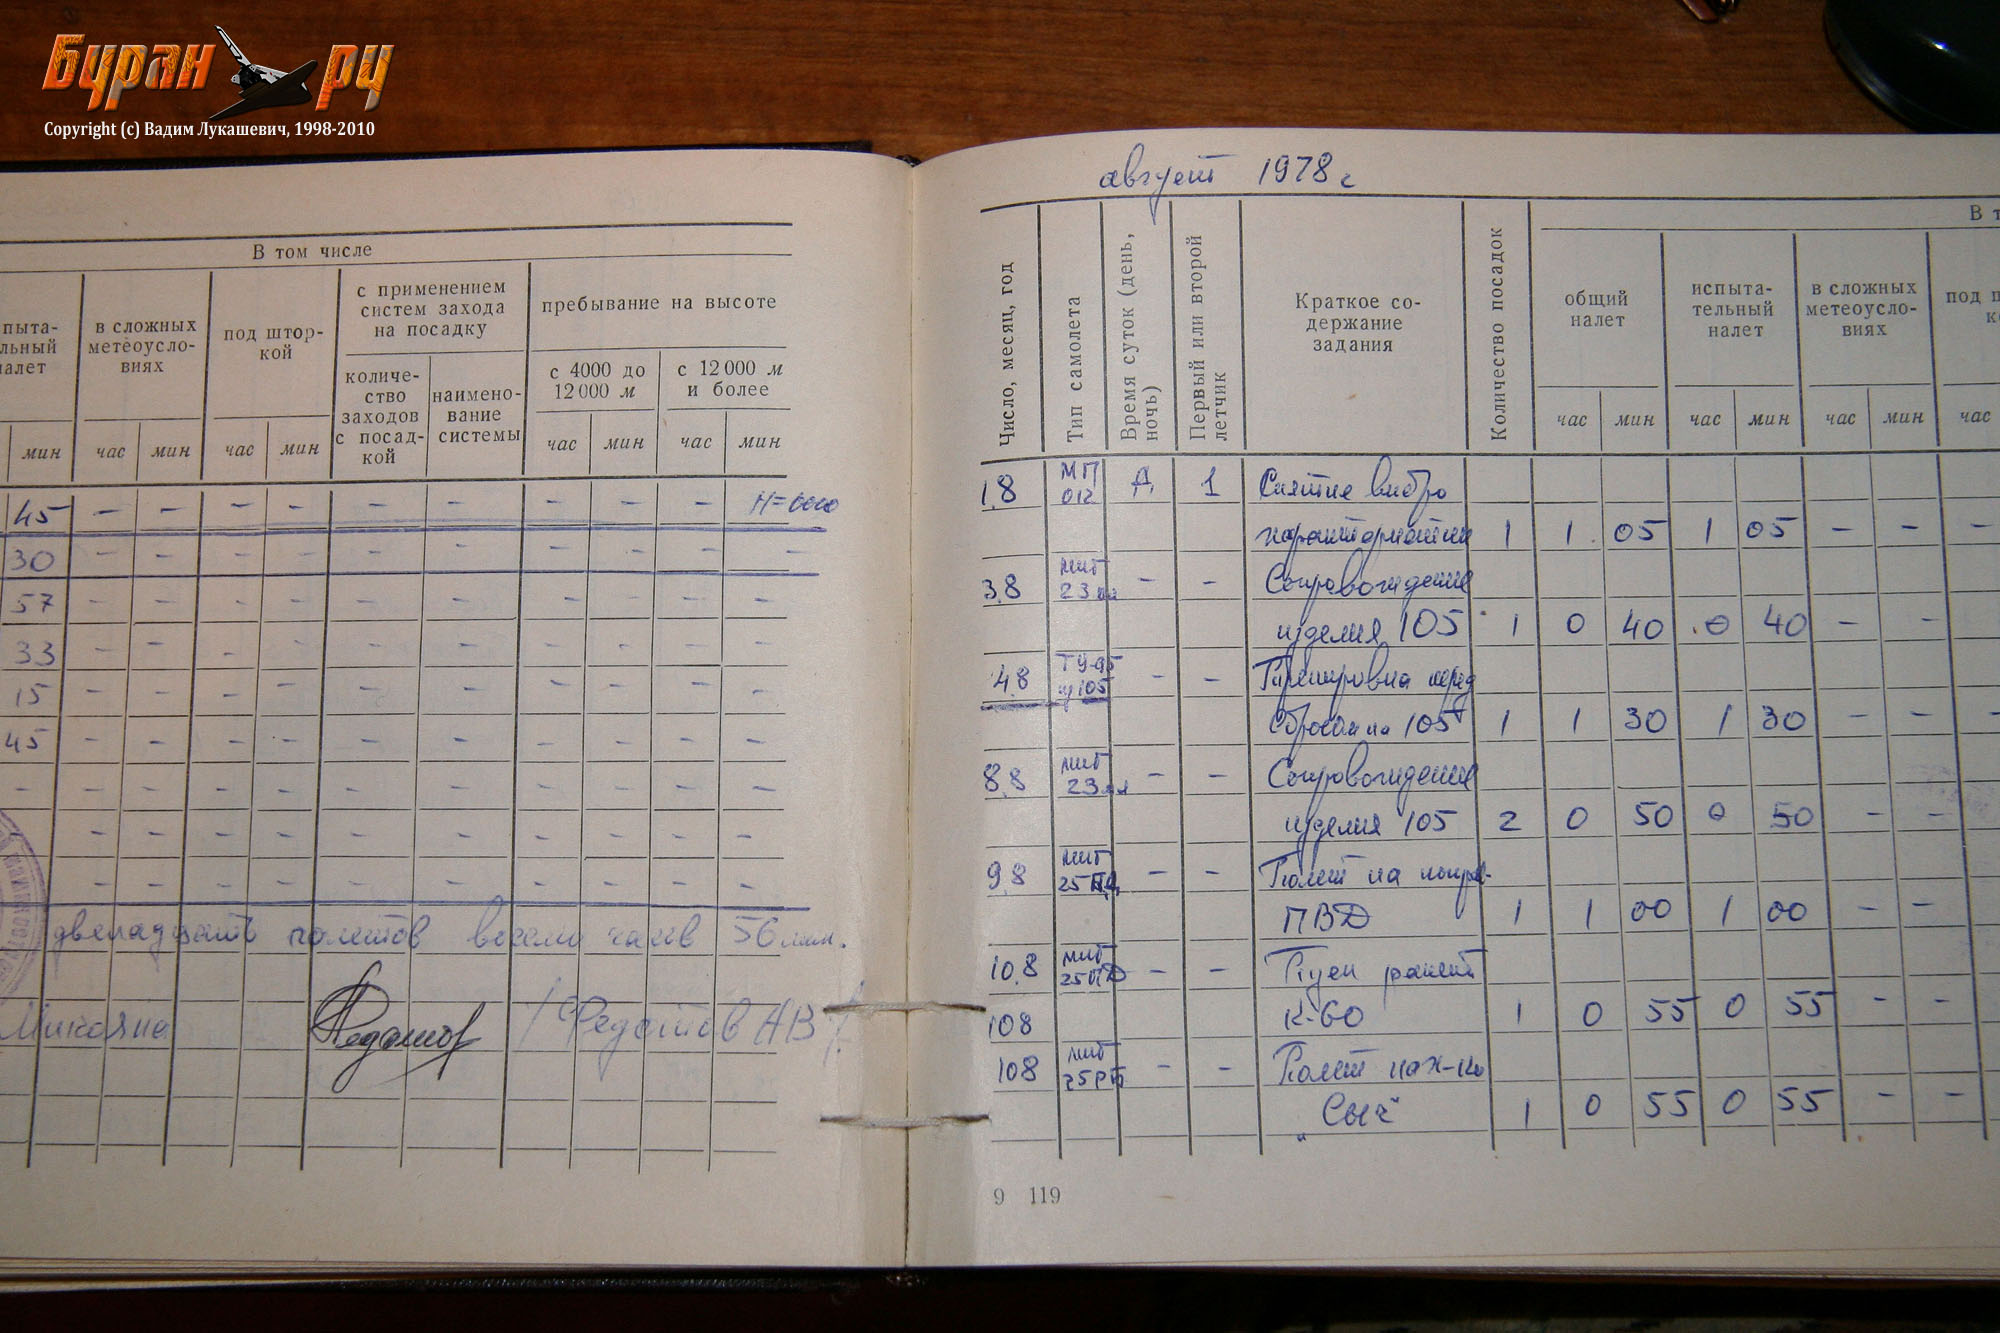 Буран ру
Copyright (c) Вадим Лукашевич, 1998-2010
В том числе
пыта-
льный
налет
в сложных
метеоусло-
виях
под штор-
кой
с применением
систем захода
на посадку
пребывание на высоте
количе-
ство
заходов
с посад-
кой
наимено-
вание
системы
с 4000 до
12 000 м
с 12 000 м
и более
мин час мин час мин час мин час мин
45 – – – – – – – – –
30 – – – – – – – – – –
57 – – – – – – – – – –
33 – – – – – – – – – –
15 – – – – – – – – – –
45 – – – – – – – – – –
– – – – – – – – – –
– – – – – – – – – –
– – – – – – – – – –
двенадцать полетов восемь часов 56 мин.
Микояна /Федотов АВ/
август 1978 г
Число, месяц, год
Тип самолета
Время суток (день,
ночь)
Первый или второй
летчик
Краткое со-
держание
задания
Количество посадок
В т
общий
налет
испыта-
тельный
налет
в сложных
метеоусло-
виях
под ш
к
час мин час мин час мин час
1.8 МП Д 1 Снятие вибро
012
характористик 1 1 05 1 05 – – –
3.8 миг – – Сопровождение
23
изделия 105 1 0 40 0 40 – – –
4.8 ТУ-95 – – Тренировка перед
105
сбросом 105 1 1 30 1 30 – – –
8.8 миг – – Сопровождение
23
изделия 105 2 0 50 0 50 – – –
9.8 миг – – Полет на
25
ПВД 1 1 00 1 00 – –
10.8 миг – – Пуск ракет
25ПД
108 К-60 1 0 55 0 55 – –
108 миг – – Полет
25РБ
"Сыч" 1 0 55 0 55 – –
9 119